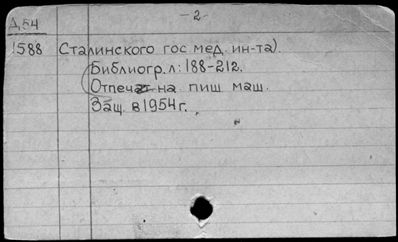 Д54
-2-
1588 Сталинского гос мед. ин-та).
Библиогр. л: 188-212.
Отпечат на пиш маш.
Защ. в 1954г.